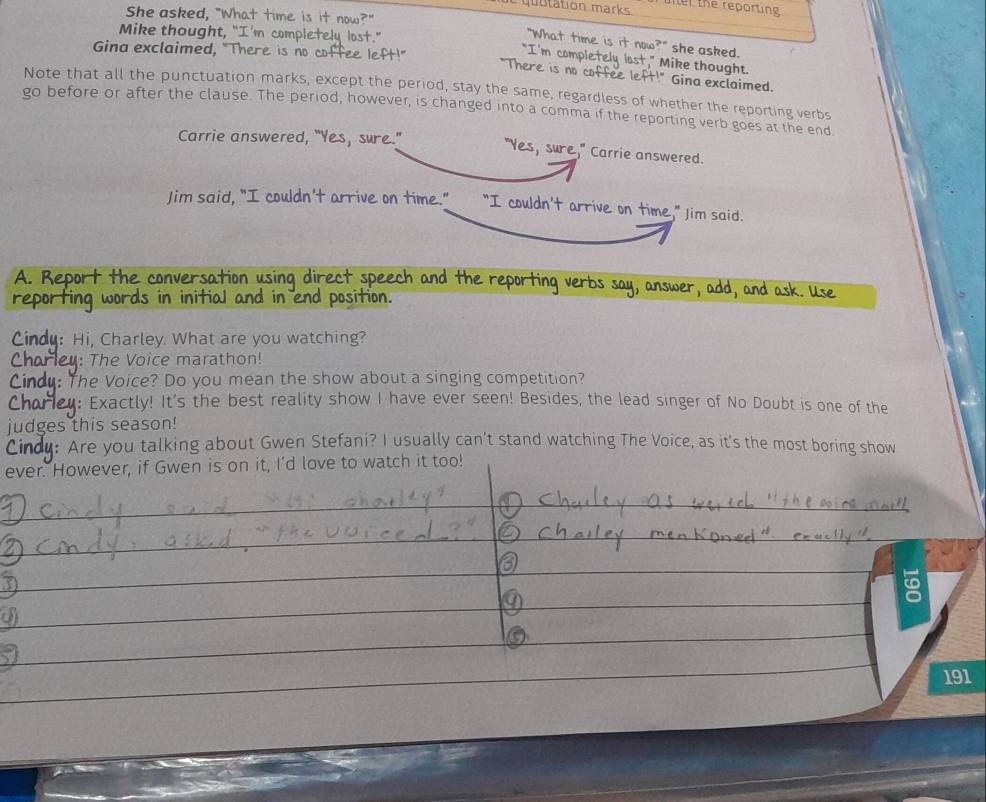 quotation marks.
the reporting
She asked, "What time is it now?"
Mike thought, "I'm completely lost."
Gina exclaimed, "There is no coffee left!"
"What time is it now?" she asked.
"I'm completely lost," Mike thought.
"There is no coffee left!" Gina exclaimed.
Note that all the punctuation marks, except the period, stay the same, regardless of whether the reporting verbs
go before or after the clause. The period, however, is changed into a comma if the reporting verb goes at the end.
Carrie answered, "Yes, sure."
"Yes, sure," Carrie answered.
Jim said, "I couldn't arrive on time."
"I couldn't arrive on time," Jim said.
A. Report the conversation using direct speech and the reporting verbs say, answer, add, and ask. Use
reporting words in initial and in end position.
Cindy: Hi, Charley. What are you watching?
Charley: The Voice marathon!
Cindy: The Voice? Do you mean the show about a singing competition?
Charley: Exactly! It's the best reality show I have ever seen! Besides, the lead singer of No Doubt is one of the
judges this season!
Cindy: Are you talking about Gwen Stefani? I usually can't stand watching The Voice, as it's the most boring show
ever. However, if Gwen is on it, I'd love to watch it too!
1 Cindy said "Hi charley"
2 Cindy, asked, "the
3
4
5
1 Charley "the
2 Charley mentioned" exactly".
3
4
5
190
191